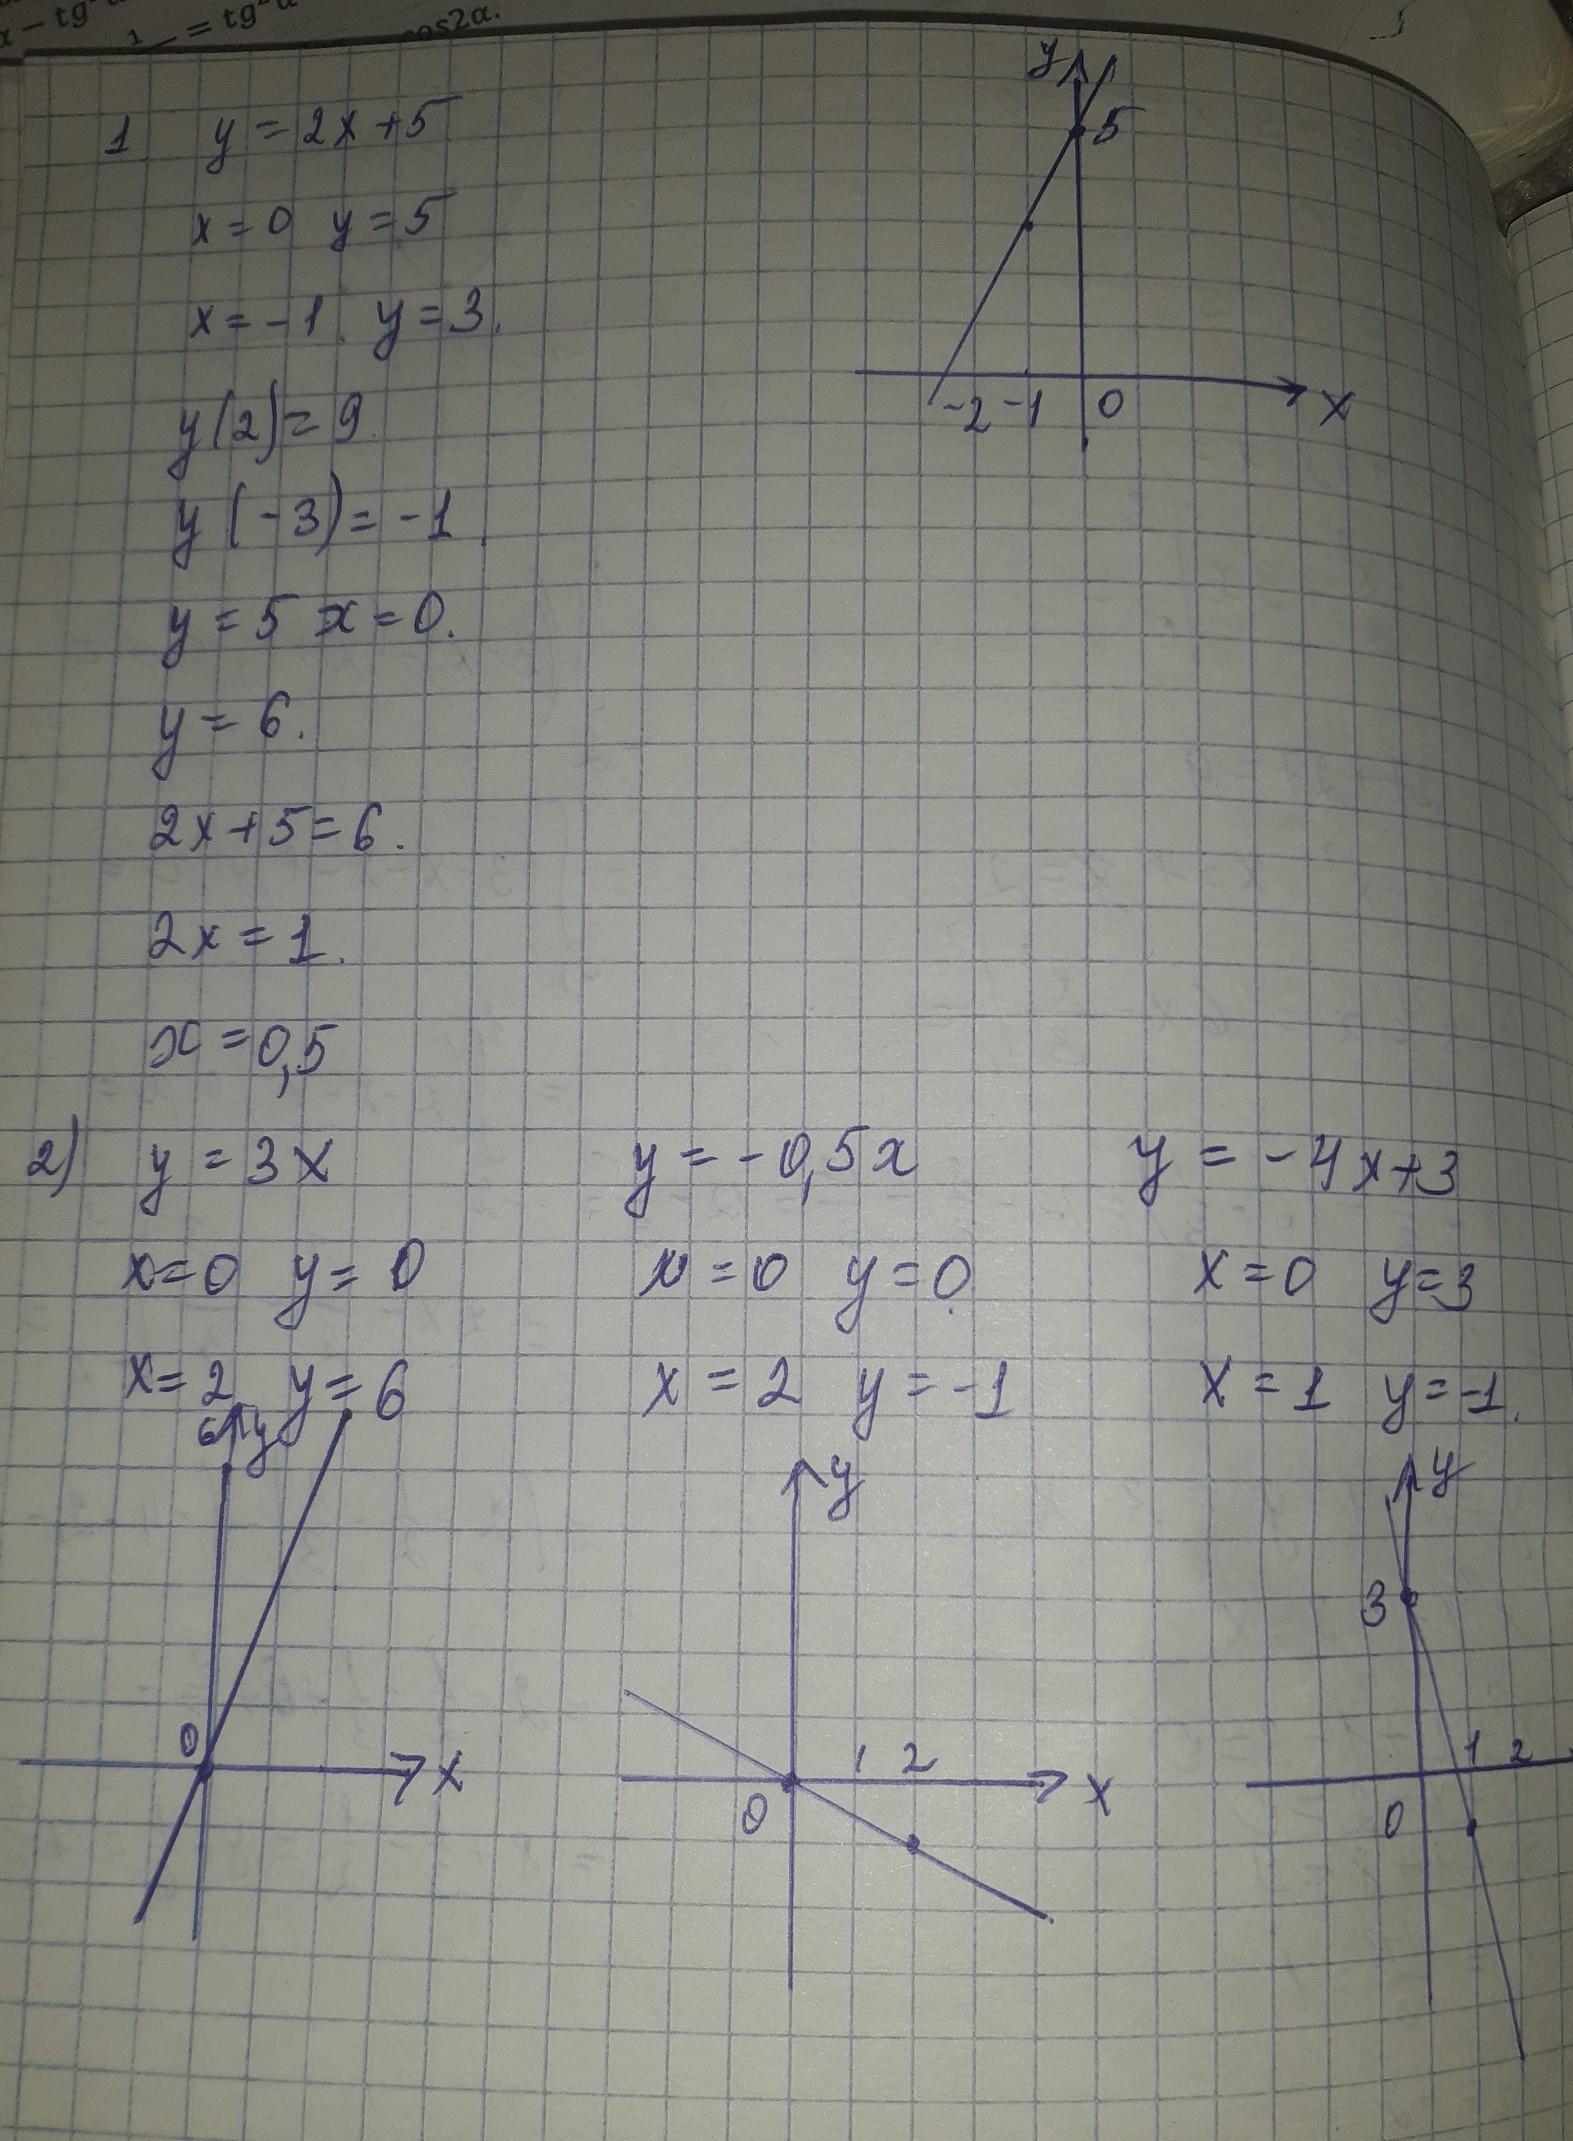 x − tg²
1 = tg²α
cos2α.
1 y = 2x + 5
x = 0 y = 5
x = -1. y = 3.
y(2) = 9
y(-3) = -1
y = 5 x = 0.
y = 6.
2x + 5 = 6.
2x = 1.
x = 0,5
y
5
-2 -1 0 x
2) y = 3x y = -0,5x y = -4x+3
x = 0 y = 0 x = 0 y = 0 x = 0 y = 3
x = 2 y = 6 x = 2 y = -1 x = 1 y = -1.
6 y y y
3
0 1 2 1 2
x 0 x 0